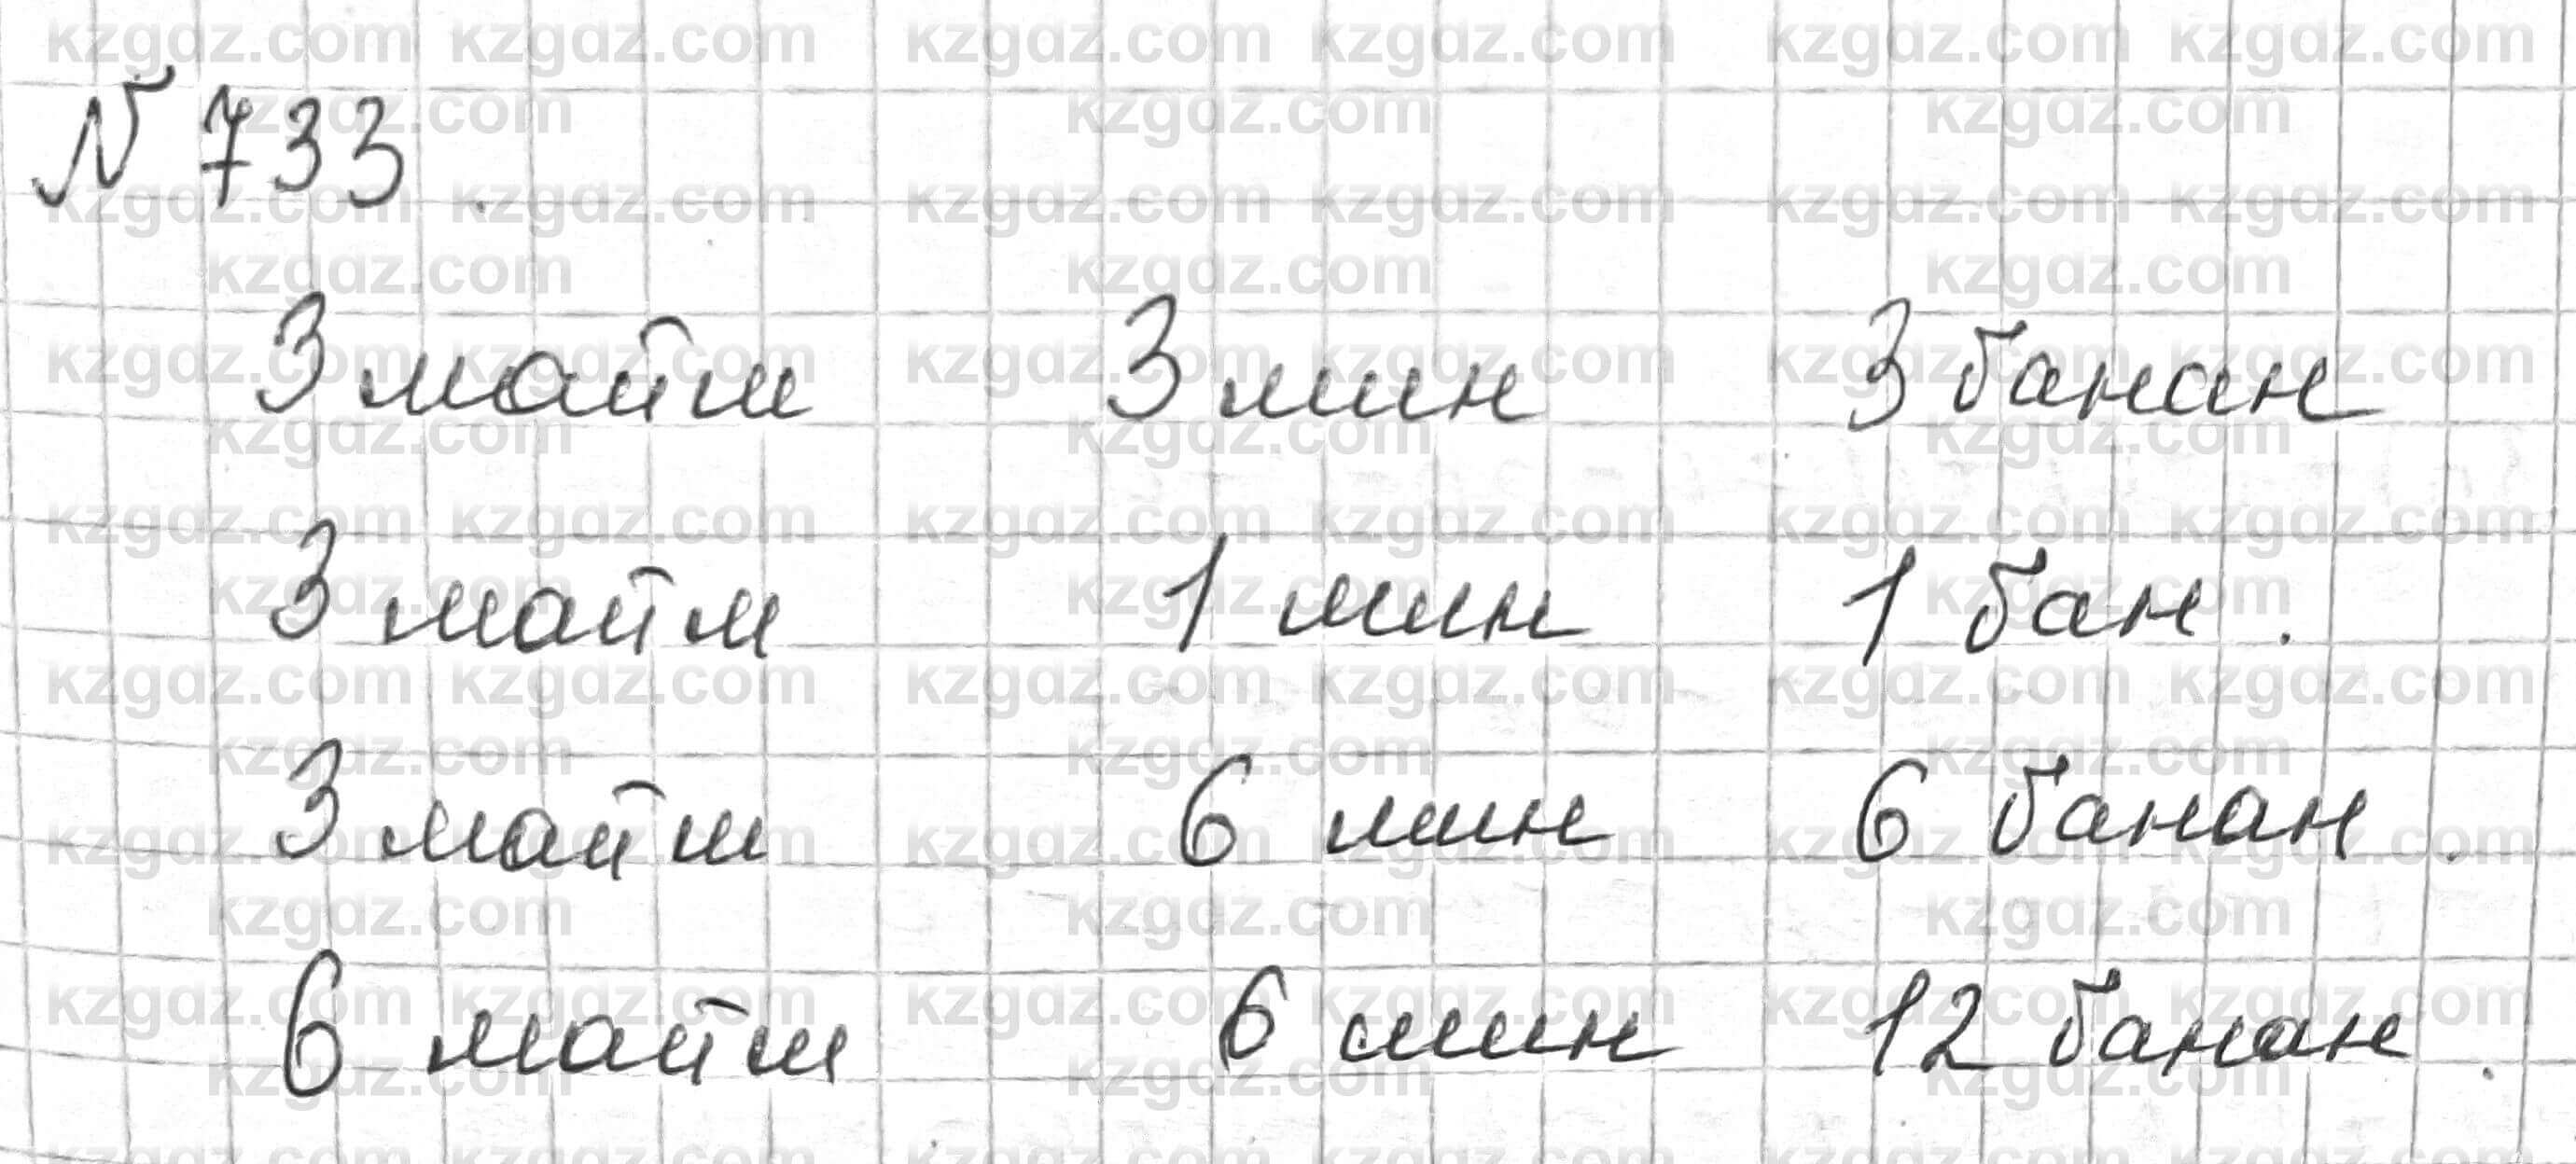 № 733
3 майм 3 мин 3 банан
3 майм 1 мин 1 бан.
3 майм 6 мин 6 банан.
6 майм 6 мин 12 банан.
kzgdz.com